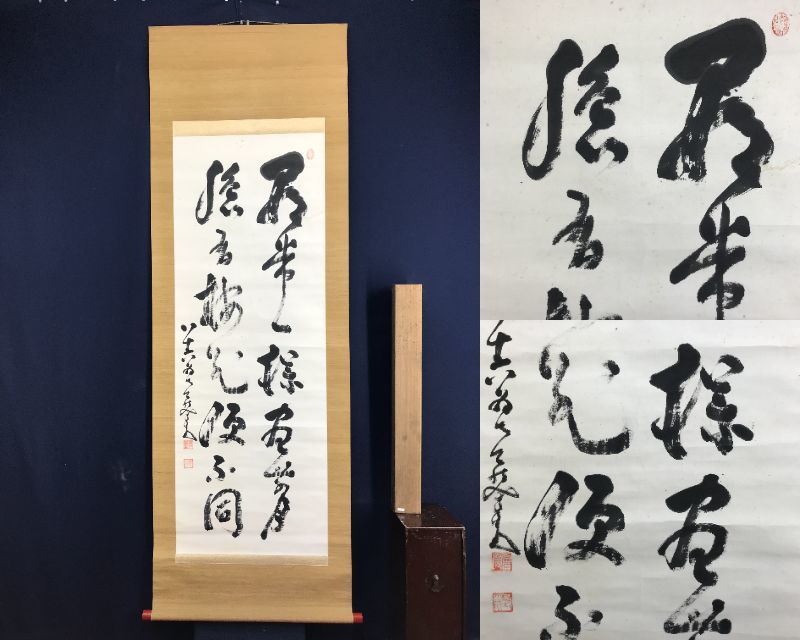 尋常一様窓前月
纔有梅花便不同